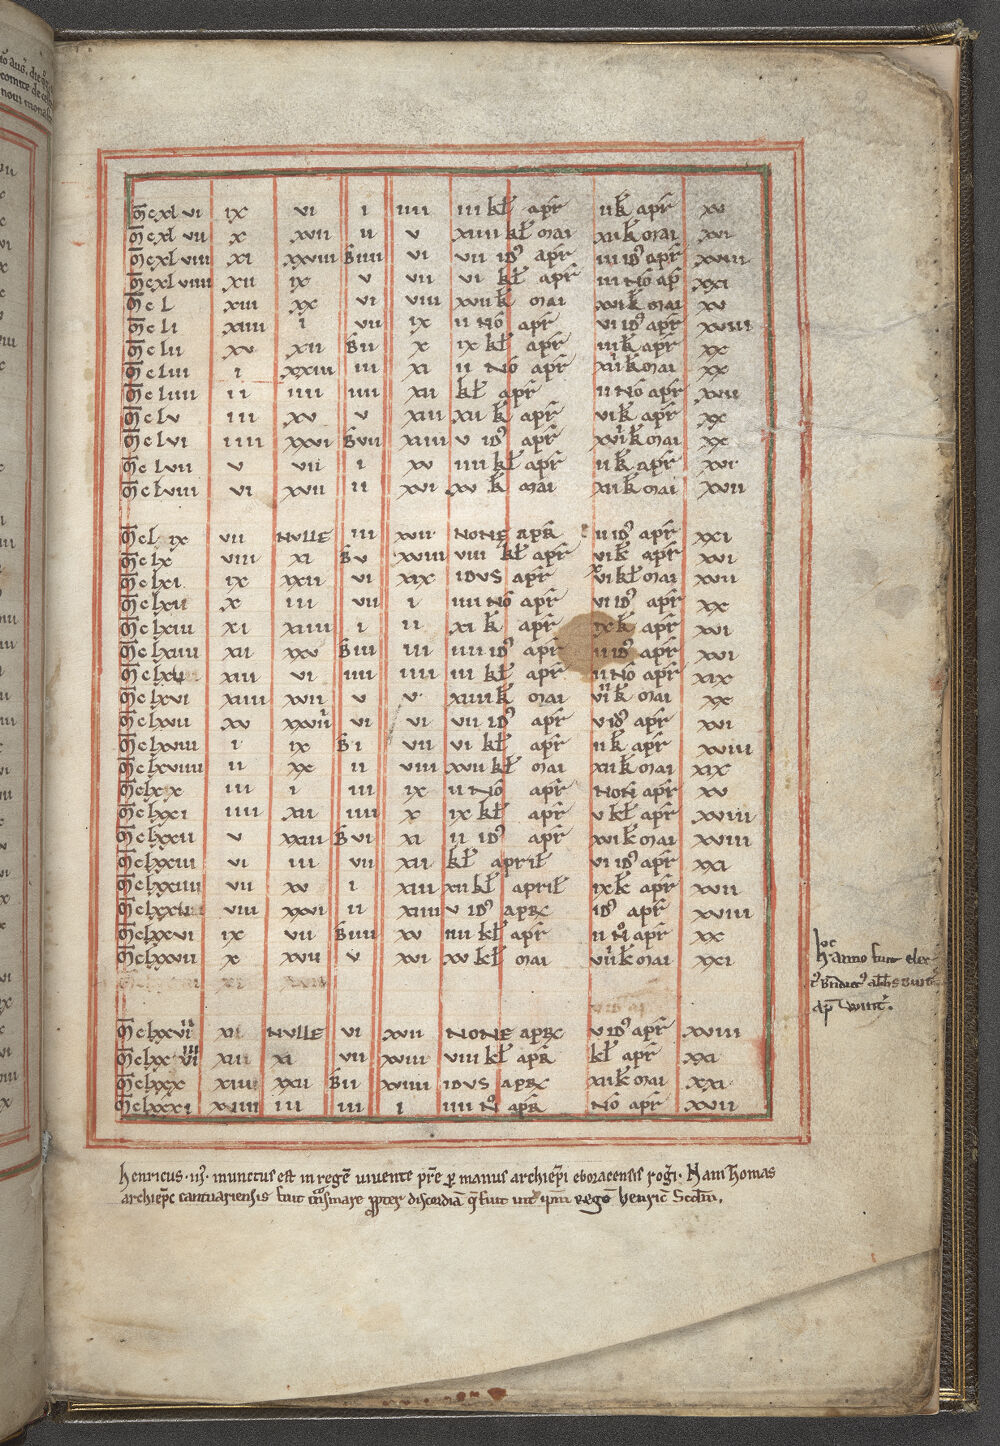 mcxlvi ix vi i iiii iii kł apr̃ ii k̃ apr̃ xv
mcxlvii x xvii ii v xiiii kł mai xii k̃ mai xvi
mcxlviii xi xxviii Biiii vi vii id᷒ apr̃ iii id᷒ apr̃ xviii
mcxlviiii xii ix v vii vi kł apr̃ iii No᷑ ap̃ xxi
mcl xiii xx vi viii xvii k̃ mai xvi k̃ mai xv
mcli xiiii i vii ix ii No᷑ apr̃ vi id᷒ apr̃ xviiii
mclii xv xii Bii x ix kł apr̃ iii k̃ apr̃ xx
mcliii i xxiii iii xi ii No᷑ apr̃ xii k̃ mai xx
mcliiii ii iiii iiii xii kł apr̃ ii No᷑ apr̃ xvii
mclv iii xv v xiii xii k̃ apr̃ vi k̃ apr̃ xx
mclvi iiii xxvi Bvii xiiii v id᷒ apr̃ xvii k̃ mai xx
mclvii v vii i xv iiii kł apr̃ ii k̃ apr̃ xvi
mclviii vi xvii ii xvi xv k̃ mai xii k̃ mai xvii
mclix vii NULLE iii xvii NONE APR ii id᷒ apr̃ xxi
mclx viii xi Bv xviii viii kł apr̃ vi k̃ apr̃ xvi
mclxi ix xxii vi xix IDUS apr̃ xvi kł mai xvii
mclxii x iii vii i iiii No᷑ apr̃ vi id᷒ apr̃ xx
mclxiii xi xiiii i ii xi k̃ apr̃ ix k̃ apr̃ xvi
mclxiiii xii xxv Biii iii iiii id᷒ apr̃ ii id᷒ apr̃ xvi
mclxv xiii vi iiii iiii iii kł apr̃ ii No᷑ apr̃ xix
mclxvi xiiii xvii v v xiiii k̃ mai vii k̃ mai xx
mclxvii xv xxviii vi vi vii id᷒ apr̃ v id᷒ apr̃ xvi
mclxviii i ix Bi vii vi kł apr̃ ii k̃ apr̃ xviii
mclxviiii ii xx ii viii xvii kł mai xii k̃ mai xix
mclxx iii i iii ix ii No᷑ apr̃ Non̄ apr̃ xv
mclxxi iiii xii iiii x ix kł apr̃ v kł apr̃ xviii
mclxxii v xxiii Bvi xi ii id᷒ apr̃ xvi k̃ mai xviii
mclxxiii vi iiii vii xii kł april̃ vi id᷒ apr̃ xxi
mclxxiiii vii xv i xiii xii kł april̃ ix k̃ apr̃ xvii
mclxxv viii xxvi ii xiiii v id᷒ APR̃ id᷒ apr̃ xviii
mclxxvi ix vii Biiii xv iiii kł apr̃ ii N̊ apr̃ xx
mclxxvii x xvii v xvi xv kł mai viii k̃ mai xxi
hoc
h anno fuit elec
apđ wint᷑.
mclxxviii xii NULLE vi xvii NONE APR̃ v id᷒ apr̃ xviii
mclxxviiii xiii xi vii xviii viii kł apr̃ kł apr̃ xxi
mclxxx xiiii xxii Bii xviiii IDUS APR̃ xii k̃ mai xxi
mclxxxi xiiii iii iii i iiii N̊ apr̃ No᷑ apr̃ xvii
henricus .iii. inunctus est in regē uiuente pr̃e ꝑ manus archiep̄i eboracensis rog̃i. Nam Thomas
archiep̄c cantuariensis fuit trãsmare ꝓpter discordiã q̄ fuit int̃ ip̄m regē henric̄ Sc̄dm.